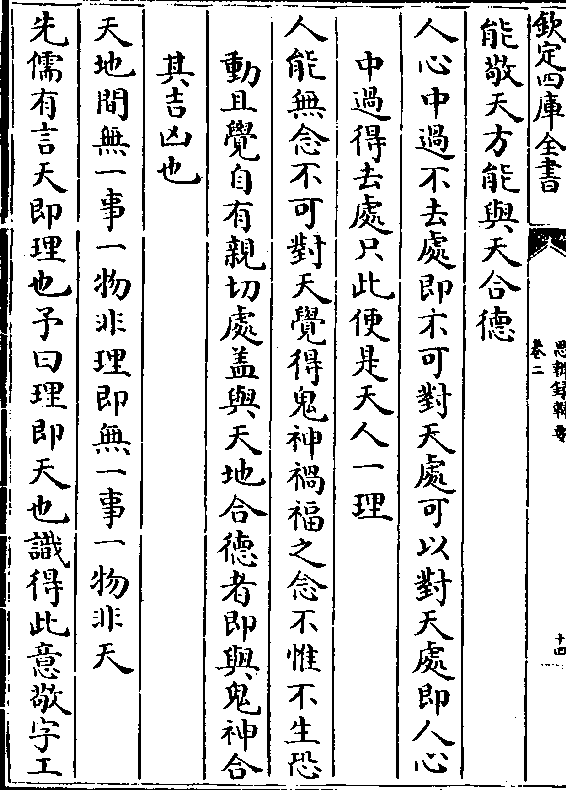 欽定四庫全書
思辨録輯要
卷二
十四
能敬天方能與天合德
人心中過不去處即不可對天處可以對天處即人心
中過得去處只此便是天人一理
人能無念不可對天覺得鬼神禍福之念不惟不生恐
動且覺自有親切處盖與天地合德者即與鬼神合
其吉凶也
天地間無一事一物非理即無一事一物非天
先儒有言天即理也予曰理即天也識得此意敬字工